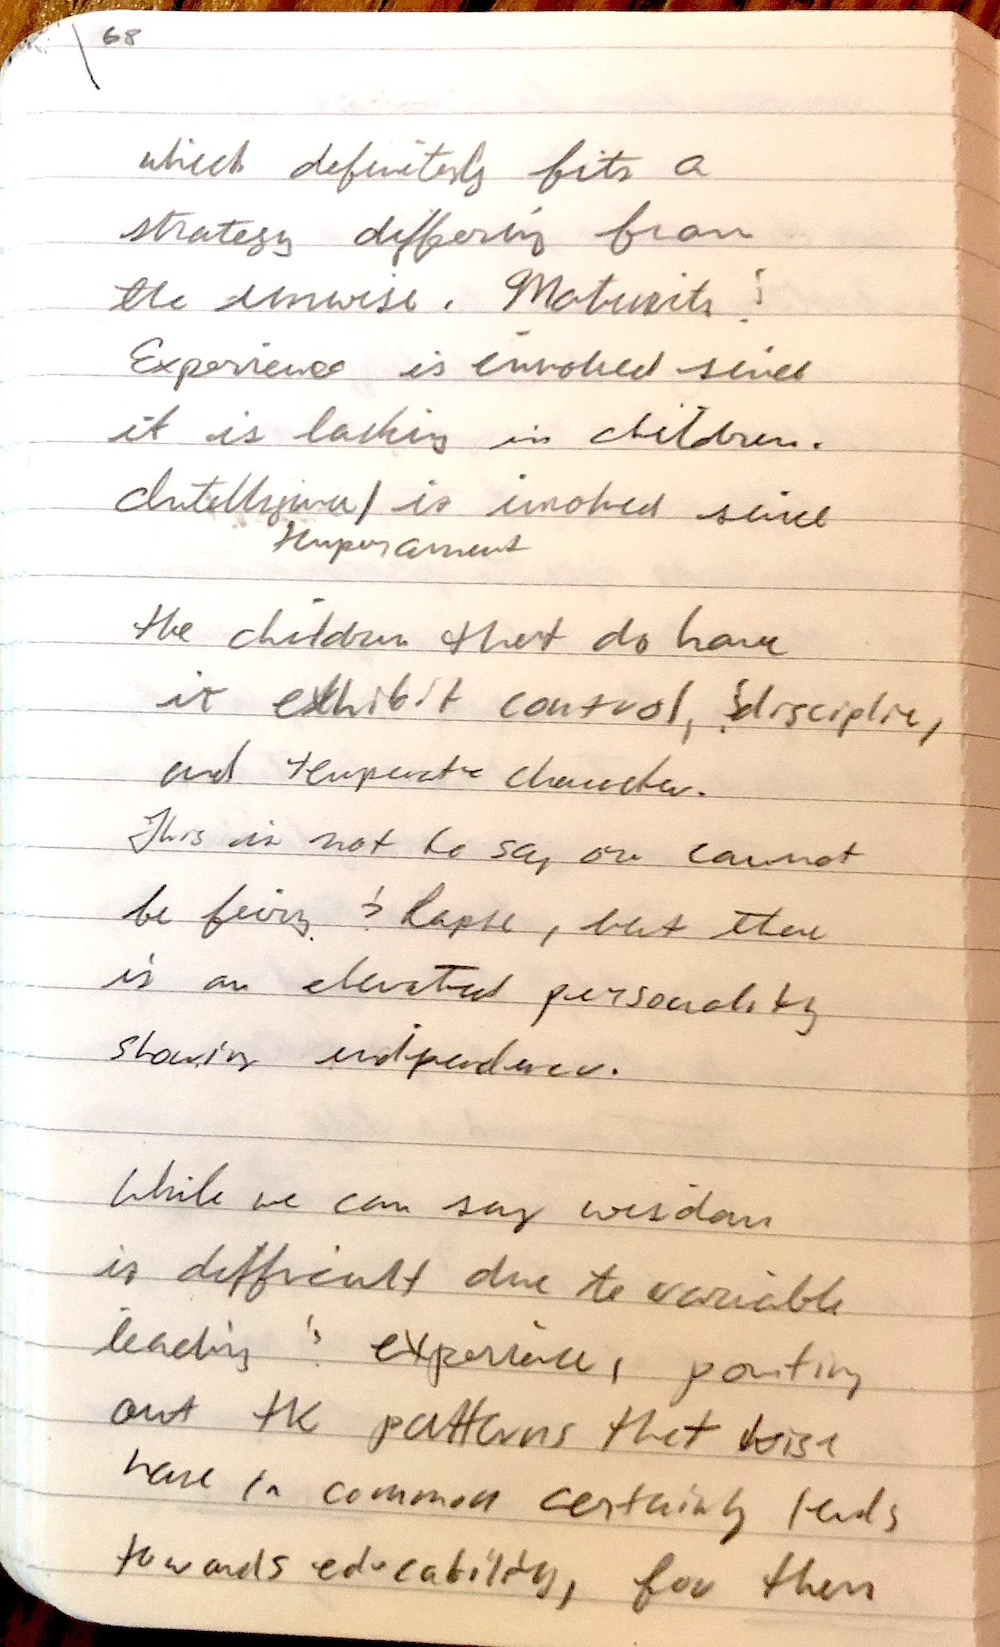 68
which definitely fits a
strategy differing from
the unwise. Maturity &
Experience is invoked since
it is lacking in children.
Intelligence/ is invoked since
temperament
the children that do have
it exhibit control, & discipline,
and temperate character.
This is not to say one cannot
be fiery & lapse, but there
is an elevated personality
showing independence.
While we can say wisdom
is difficult due to variable
leading & experience, pointing
out the patterns that wise
have in common certainly leads
towards educability, for then